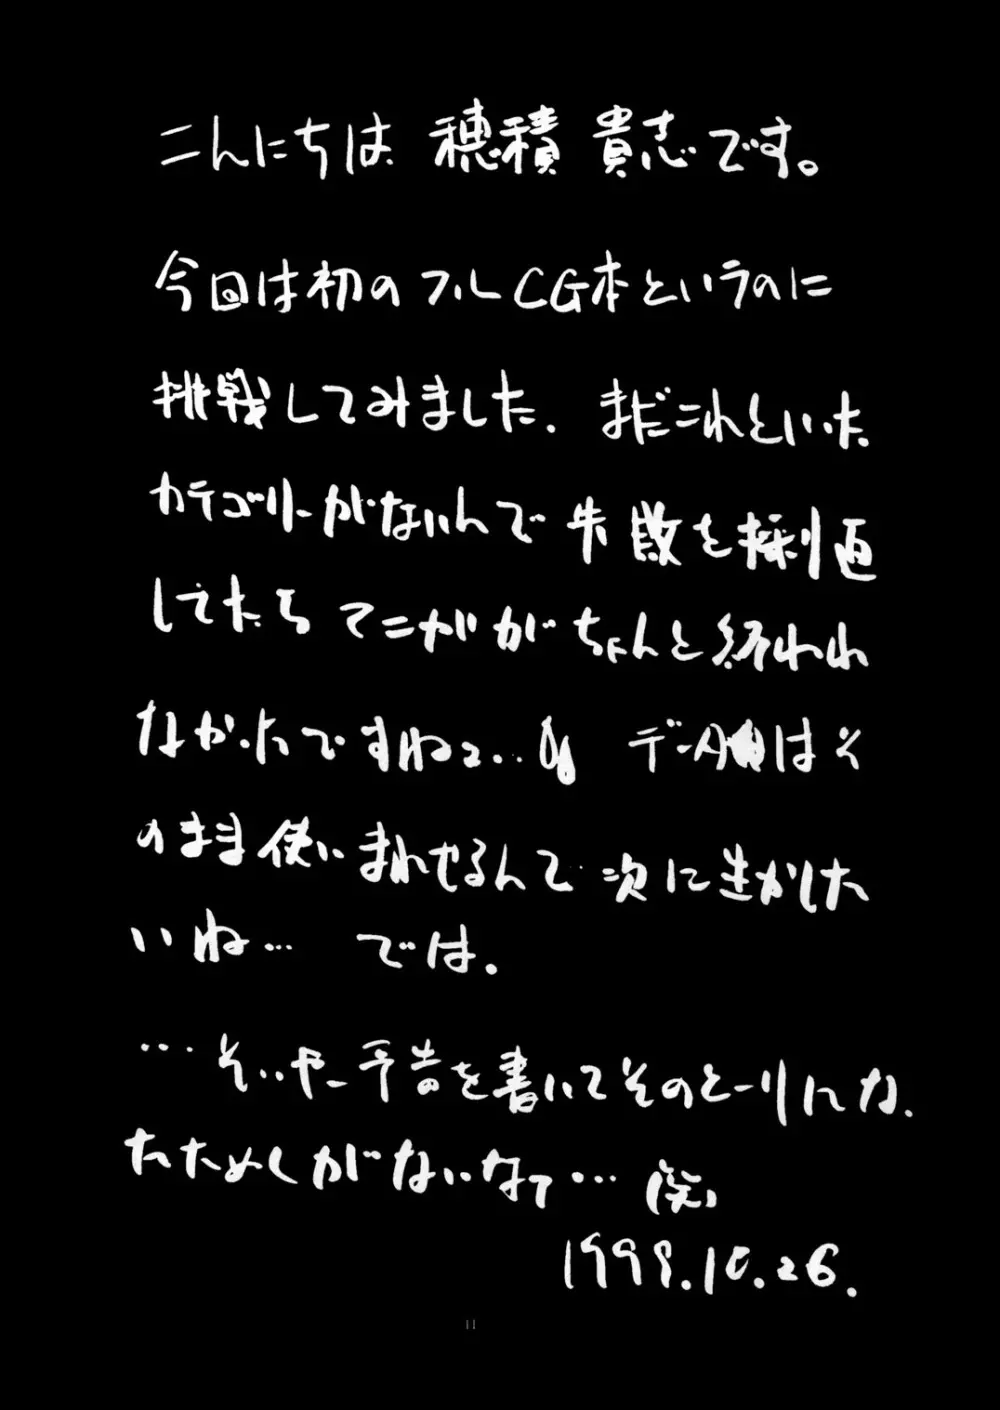 こんにちは 穂積 貴志です。
今回は初のフルCG本というのに
挑戦してみました. まだこれといった
カテゴリーがないんで失敗を採り直
してたら マンガがちゃんと終われ
なかったですねェ… データは そ
のまま使いまわせるんで 次に生かした
いね… では.
…そいやー予告を書いてそのとーりにな.
たためしがないなァ… (笑)
1999.10.26.
11